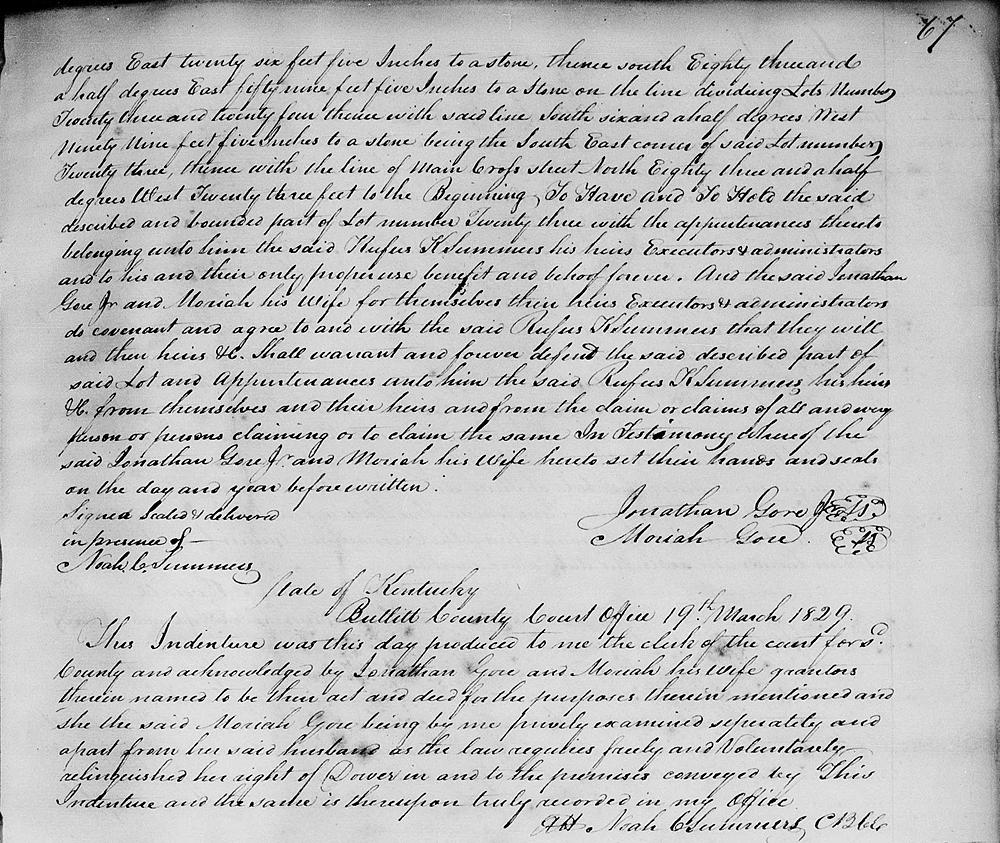 67
degrees East twenty six feet five Inches to a stone, thence south Eighty three and
a half degrees East fifty nine feet five Inches to a stone on the line dividing Lots Number
Twenty three and twenty four thence with said line South six and a half degrees West
Ninety Nine feet five Inches to a stone being the South East corner of said Lot number
Twenty three, thence with the line of Main Cross street North Eighty three and a half
degrees West Twenty three feet to the Beginning, To Have and To Hold the said
described and bounded part of Lot number Twenty three with the appurtenances thereto
belonging unto him the said Rufus K Summers his heirs Executors & administrators
and to his and their only proper use benefit and behoof forever. And the said Jonathan
Gore Jr and Moriah his Wife for themselves their heirs Executors & administrators
do covenant and agree to and with the said Rufus K Summers that they will
and their heirs &C. Shall warrant and forever defend the said described part of
said Lot and Appurtenances unto him the said Rufus K Summers, his heirs
&C. from themselves and their heirs and from the claim or claims of all and every
person or persons claiming or to claim the same In Testimony whereof the
said Jonathan Gore Jr. and Moriah his Wife hereto set their hands and seals
on the day and year before written.
Signed Sealed & delivered
in presence of
Noah C Summers
Jonathan Gore Jr
Moriah Gore
State of Kentucky
Bullitt County Court Office 19th March 1829.
This Indenture was this day produced to me the clerk of the court for sd.
County and acknowledged by Jonathan Gore and Moriah his Wife grantors
therein named to be their act and deed for the purposes therein mentioned and
she the said Moriah Gore being by me privily examined seperately and
apart from her said husband as the law requires freely and Voluntarily
relinquished her right of Dower in and to the premises conveyed by This
Indenture and the same is thereupon truly recorded in my Office
Att Noah C Summers, CBCC